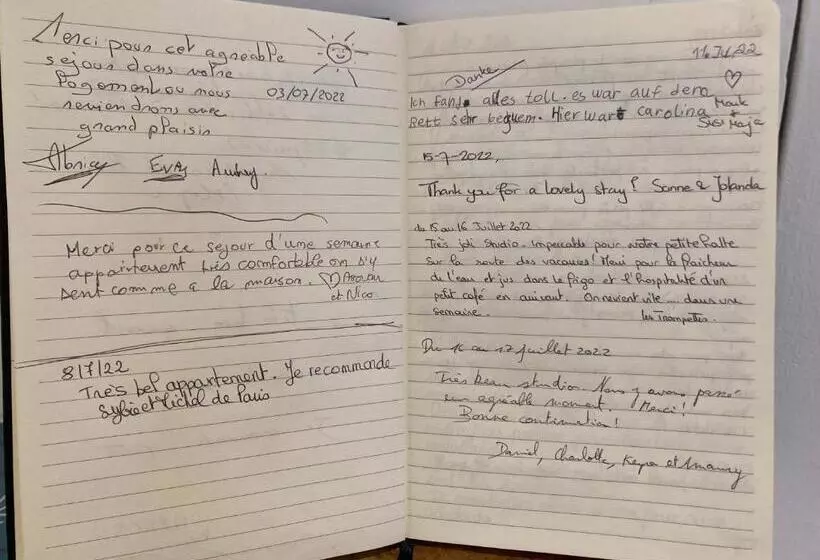 Merci pour cet agréable
séjour dans votre
logement ou nous
03/07/2022
reviendrons avec
grand plaisir
EVA Audrey.
Merci pour ce sejour d'une semaine
appartement très comfortable on s'y
sent comme a la maison. ♡
et Nico
8/7/22
Très bel appartement. Je recommande
Sylvie et Michel de Paris
11.Jul.22
Danke
♡
Ich fand alles toll. es war auf dem
Bett sehr bequem. Hier war Carolina
Maik
+
Maja
15-7-2022,
Thank you for a lovely stay! Sanne & Jolanda
du 15 au 16 Juillet 2022
Très joli Studio. Impeccable pour notre petite halte
sur la route des vacances! Merci pour la fraicheur
de l'eau et jus dans le frigo et l'hospitalité d'un
petit café en arrivant. On revient vite.... dans une
semaine.
les Trompettes.
Du 16 au 17 juillet 2022
Très beau studio. Nous y avons passé
un agréable moment. Merci!
Bonne continuation!
Daniel, Charlotte, et Amaury